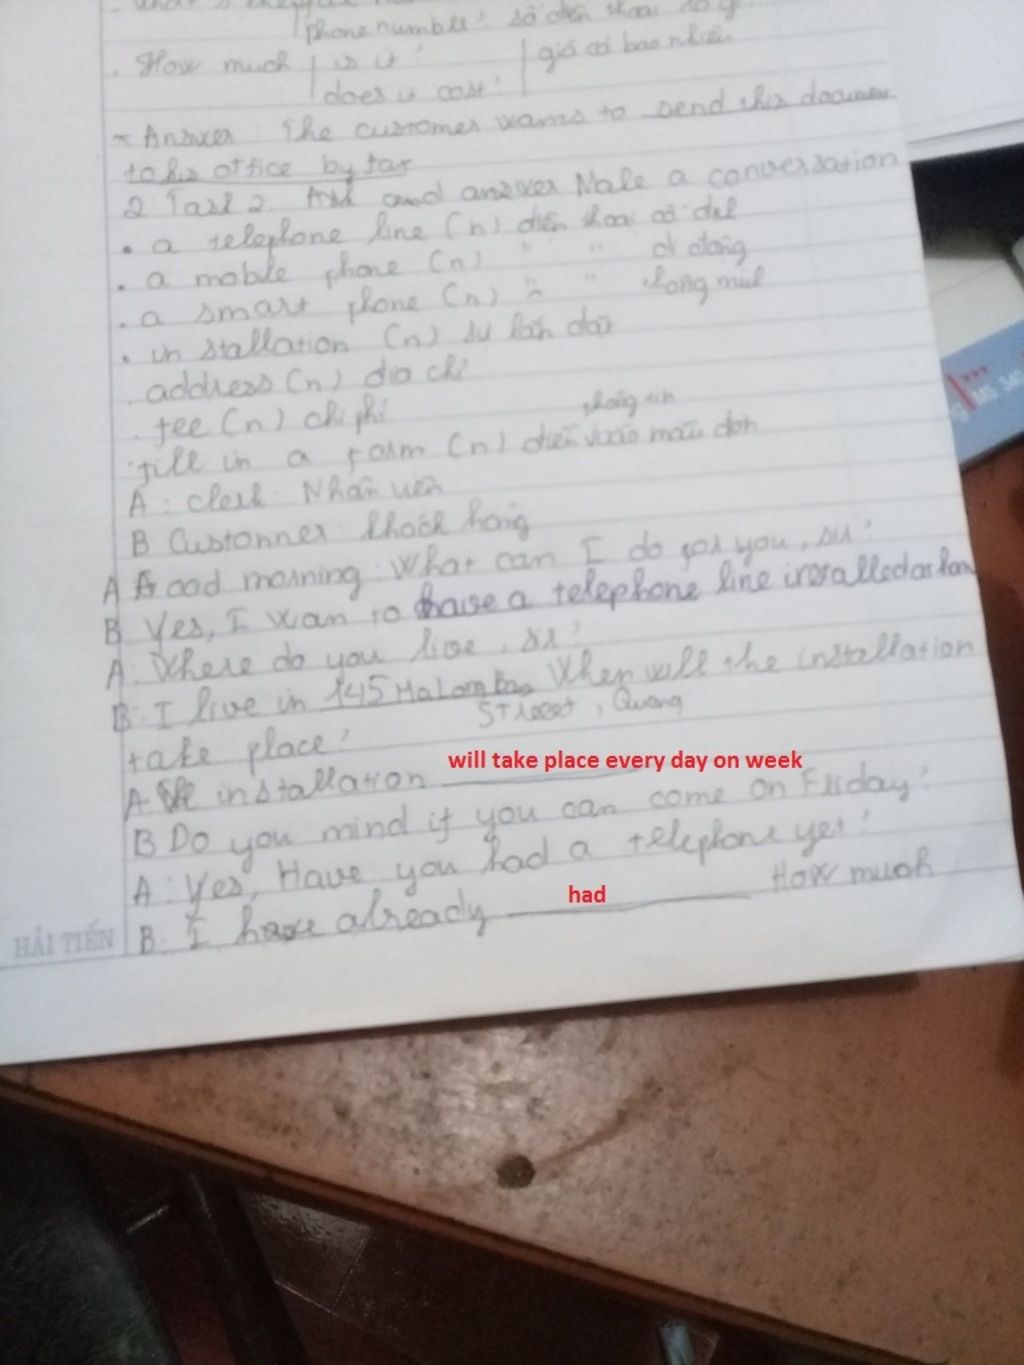 phone number? số điện thoại
. How much | is it? | giá cả bao nhiêu
does it cost?
Answer: The customer wants to send this document
to his office by fax
2 Task 2. Ask and answer Make a conversation
. a telephone line (n) điện thoại cố định
. a mobile phone (n) " " di động
. a smart phone (n) " " thông
. installation (n) sự lắp đặt
. address (n) địa chỉ
. fee (n) chi phí
thông tin
. fill in a form (n) điền vào mẫu đơn
A: clerk: Nhân viên
B Custonner: khách hàng
A Good morning. What can I do for you, sir?
B Yes, I wan to have a telephone line installed at
A: Where do you live, sir?
B: I live in 145 When will the installation
Street, Quang
take place?
A. The installation will take place every day on week
B Do you mind if you can come on Friday?
A: Yes, Have you had a telephone yet?
B. I have already had How much
HẢI TIẾN